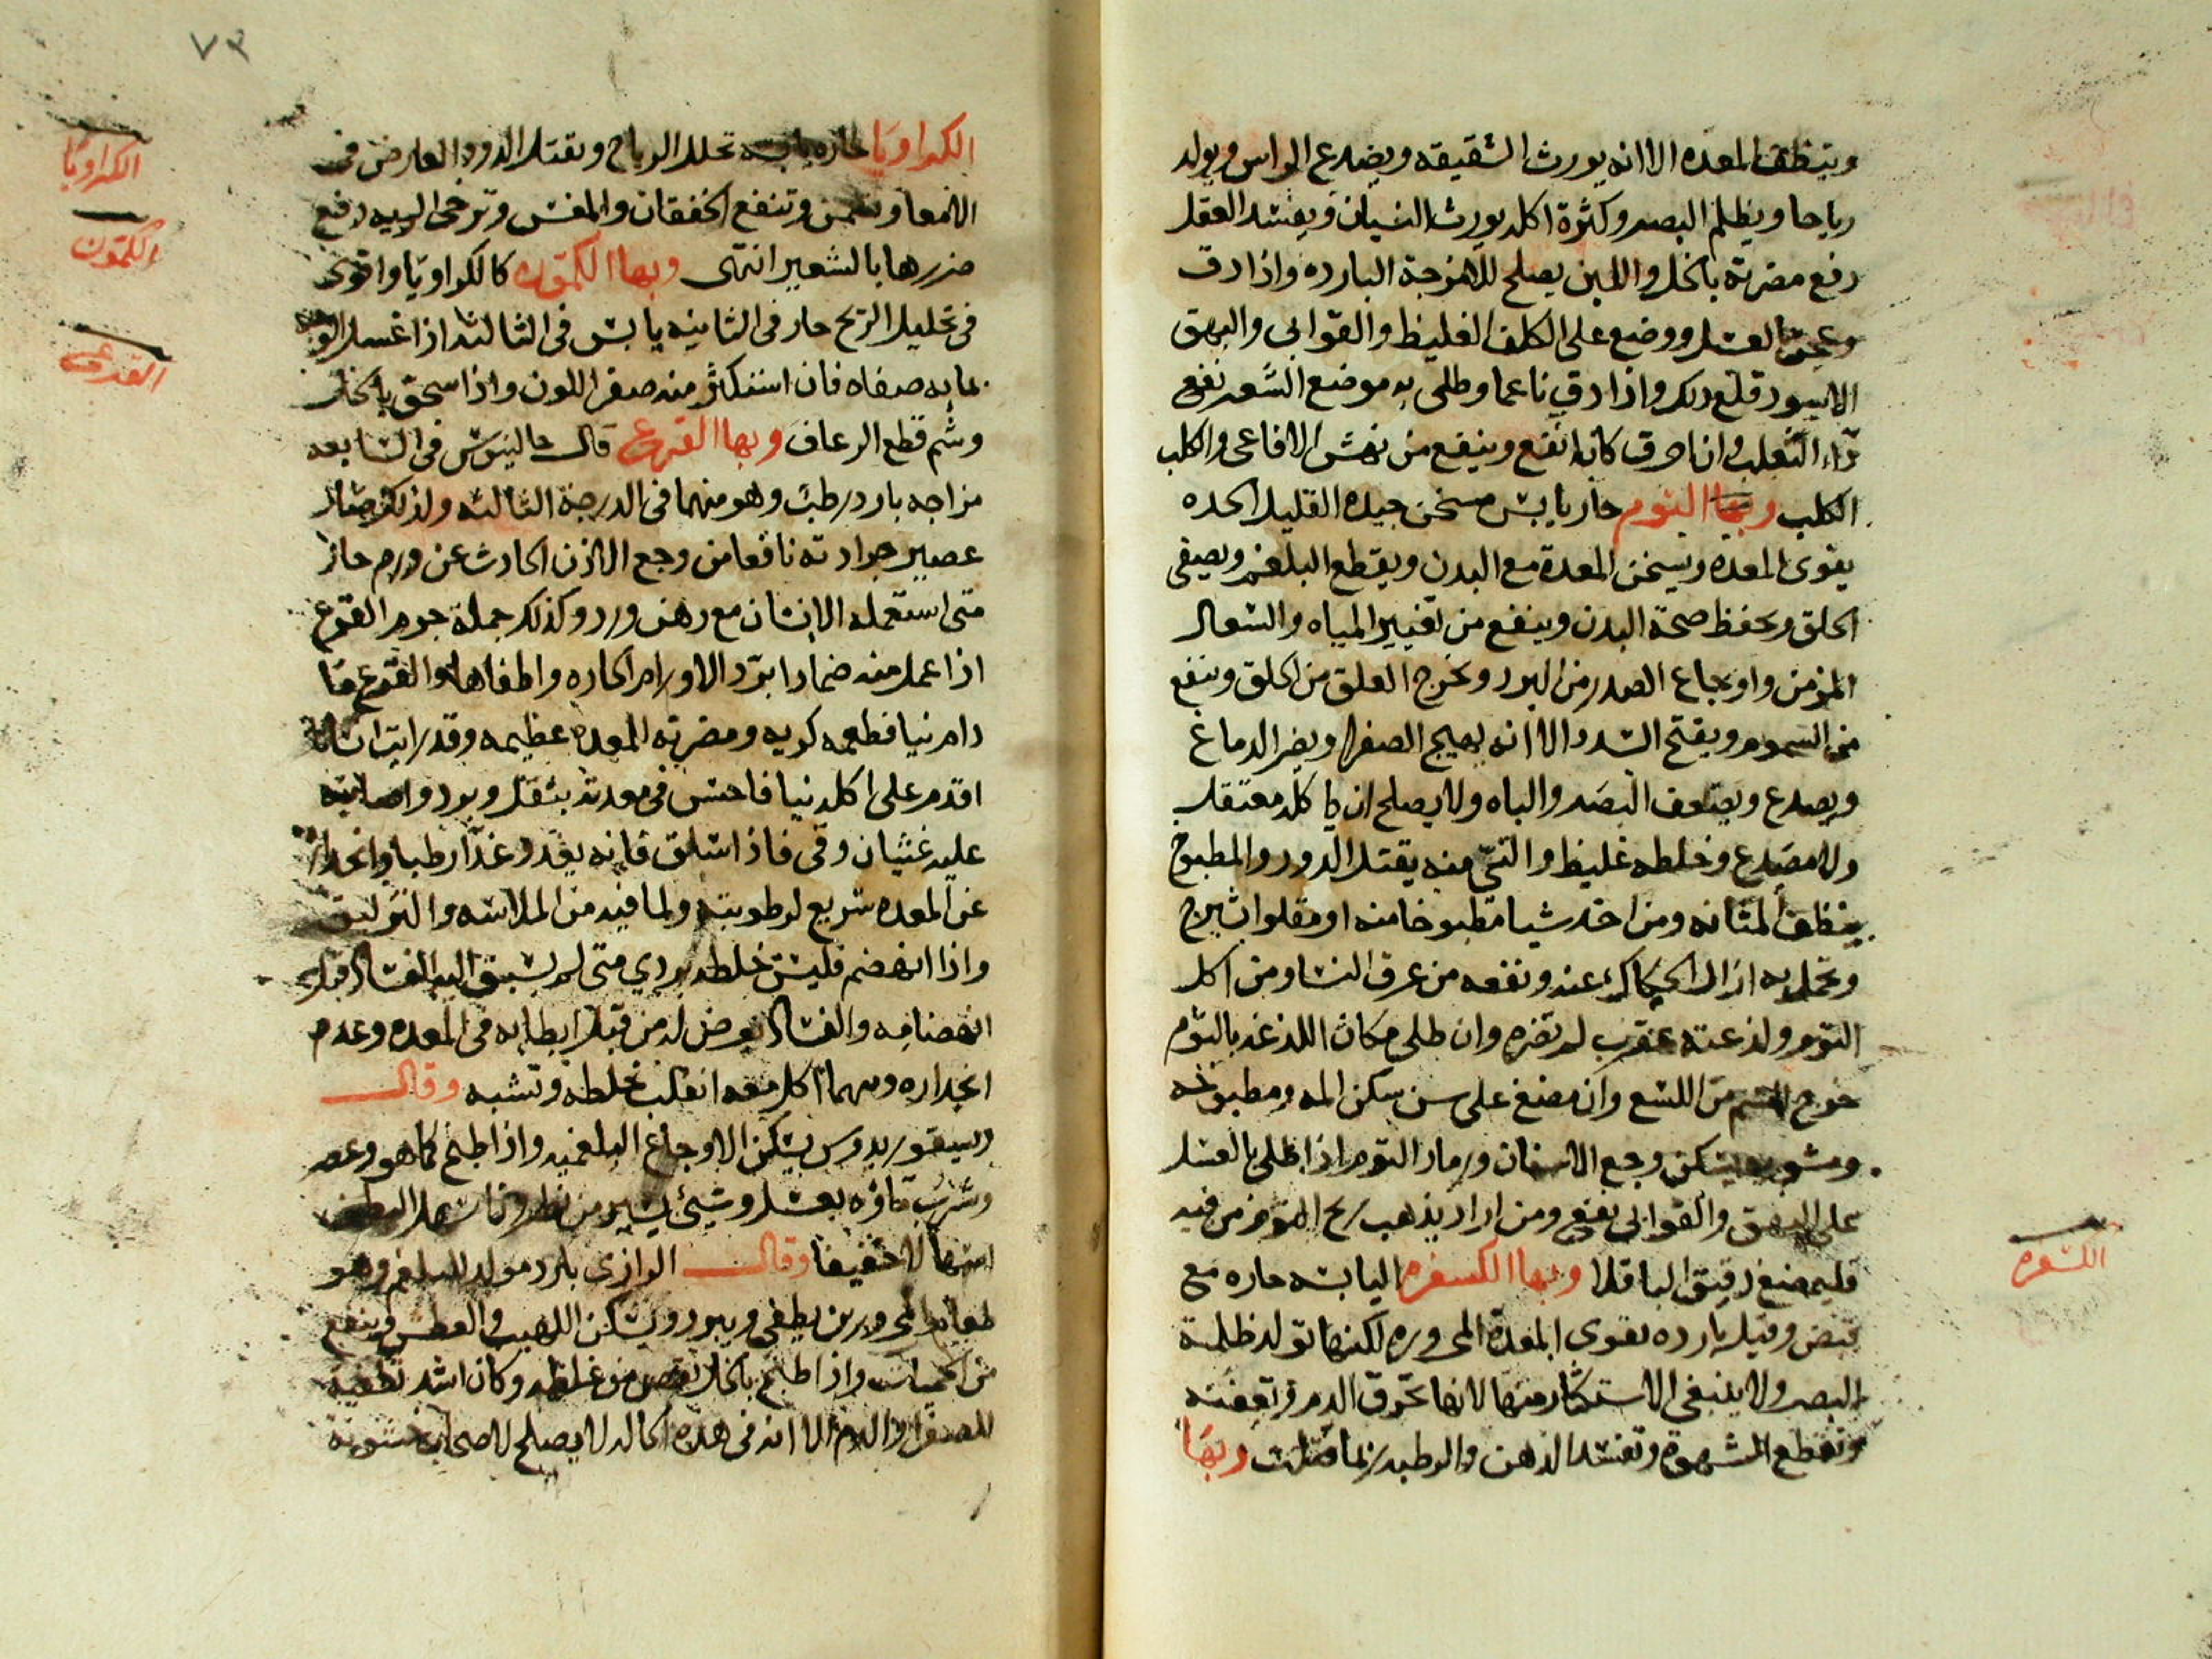 وينظف المعده الا انه يورث الشقيقه ويصدع الراس ويولد
رياحا ويظلم البصر وكثرة اكله يورث النسيان ويفسد العقل
دفع مضرته بالخل واللبن يصلح للامزجة البارده واذا دق
وعجن بالعسل ووضع على الكلف الغليظ والقوابي والبهق
الاسود قلع ذلك واذا دق ناعما وطلى به موضع الشعر نفع
داء الثعلب وان احرق كان انفع وينفع من نهش الافاعى والكلب
الكلب وبها الثوم حار يابس مسخن جيده القليل الحده
يقوى المعده ويسخن المعدة مع البدن ويقطع البلغم ويصفى
الحلق ويحفظ صحة البدن وينفع من تغيير المياه والسعال
المزمن واوجاع الصدر من البرد ويخرج العلق من الحلق وينفع
من السموم ويفتح السدد الا انه يهيج الصفرا ويضر الدماغ
ويصدع ويضعف البصر والباه ولا يصلح ان ياكله معتقل
ولا مصدع وخلطه غليظ والنيّ منه يقتل الدود والمطبوخ
ينظف المثانه ومن اخذ شيا مطبوخا منه او مقلوا بشيرج
وتحمل به ازال الحكاك عنه ونفعه من عرق النسا ومن اكل
الثوم ولدغته عقرب لم تضره وان طلى مكان اللدغه بالثوم
خرج السم من اللسع وان مضغ على سن سكن المه ومطبوخه
ومشويه يسكن وجع الاسنان ورماد الثوم اذا طلى بالعسل
على البهق والقوابى نفع ومن اراد يذهب ريح الثوم من فيه
فليمضغ دقيق الباقلا وبها الكسفره اليابسه حاره مع
قبض وقيل بارده تقوى المعدة المحروره لكنها تولد ظلمة
البصر ولا ينبغى الاستكثار منها لانها تحرق الدم وتعفنه
وتقطع الشهوة وتفسد الذهن والرطبه ربما قتلت وبها
الكسفره
٧٣
الكراويا حاره يابسه تحلل الرياح وتقتل الدود العارض فى
الامعا وتسخن وتنفع الخفقان والمغس وترخى الريه دفع
ضررها بالشعير انتهى وبها الكمون كالكراويا واقوى
فى تحليل الريح حار فى الثانيه يابس فى الثالثه اذا غسل الوجه
بمايه صفاه فان استكثر منه صفر اللون واذا سحق بالخل
وشم قطع الرعاف وبها القرع قال جالينوس فى السابعه
مزاجه بارد رطب وهو منهما فى الدرجة الثالثه ولذلك صار
عصير جرادته نافعا من وجع الاذن الحادث عن ورم حار
متى استعمله الانسان مع دهن ورد وكذلك جملة جرم القرع
اذا عمل منه ضمادا برّد الاورام الحاره واطفاها والقرع ما
دام نيا فطعمه كريه ومضرته المعده عظيمه وقد رايت انسانا
اقدم على اكله نيا فاحس فى معدته بثقل وبرد واصابته
عليه غثيان وقى فاذا سلق فانه يغدو غذا رطبا وانحداره
عن المعده سريع لرطوبته ولما فيه من الملاسه والتزليق
واذا انهضم فليس خلطه بردي متى لم يسبق اليه الفساد قبل
انهضامه والفساد يعرض له من قبل ابطايه فى المعده وعدم
انحداره ومهما اكل معه انقلب بخلطه وتشبه وقال
ديسقوريدوس يسكن الاوجاع البلغميه واذا طبخ كما هو وعصر
وشرب ماوه بعسل وشىء يسير من نطرون اسهل البطن
اسهالا خفيفا وقال الرازى بارد مولد للبلغم وهو
طعام المحرورين يطفى ويبرد ويسكن اللهيب والعطش وينفع
من الحميات واذا طبخ بالخل نقص من غلظه وكان اشد تطفية
للصفرا والدم الا انه فى هذه الحاله لا يصلح لاصحاب خشونة
الكراويا
الكمون
القرع